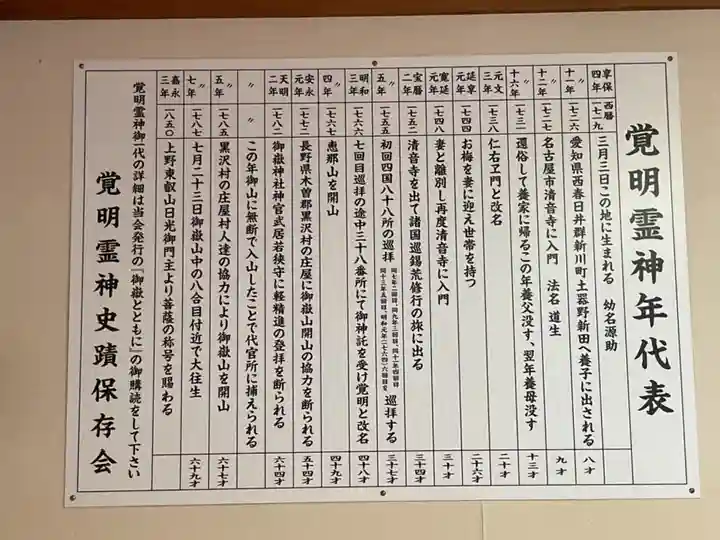 覚明霊神年代表
西暦
享保四年 一七一九 三月三日この地に生まれる 幼名源助
〃十一年 一七二六 愛知県西春日井群新川町土器野新田へ養子に出される 八才
〃十二年 一七二七 名古屋市清音寺に入門 法名 道生 九才
〃十六年 一七三一 還俗して養家に帰るこの年養父没す、翌年養母没す 十三才
元文三年 一七三八 仁右ヱ門と改名 二十才
延享元年 一七四四 お梅を妻に迎え世帯を持つ 二十六才
寛延元年 一七四八 妻と離別し再度清音寺に入門 三十才
宝暦二年 清音寺を出て諸国巡錫荒修行の旅に出る 三十四才
〃五年 一七五五 初回四国八十八所の巡拝 巡拝する 三十七才
明和三年 一七六六 七回目巡拝の途中三十八番所にて御神託を受け覚明と改名 四十八才
〃四年 一七六七 恵那山を開山 四十九才
安永元年 一七七二 長野県木曽郡黒沢村の庄屋に御嶽山開山の協力を断られる 五十四才
天明二年 一七八二 御嶽神社神官武居若狭守に軽精進の登拝を断られる 六十四才
〃 〃 この年御山に無断で入山したことで代官所に捕えられる
〃五年 一七八五 黒沢村の庄屋村人達の協力により御嶽山を開山 六十七才
〃七年 一七八七 七月二十三日御嶽山中の八合目付近で大往生 六十九才
嘉永三年 一八五〇 上野東叡山日光御門主より菩薩の称号を賜わる
覚明霊神御一代の詳細は当会発行の『御嶽とともに』の御購読をして下さい
覚明霊神史蹟保存会